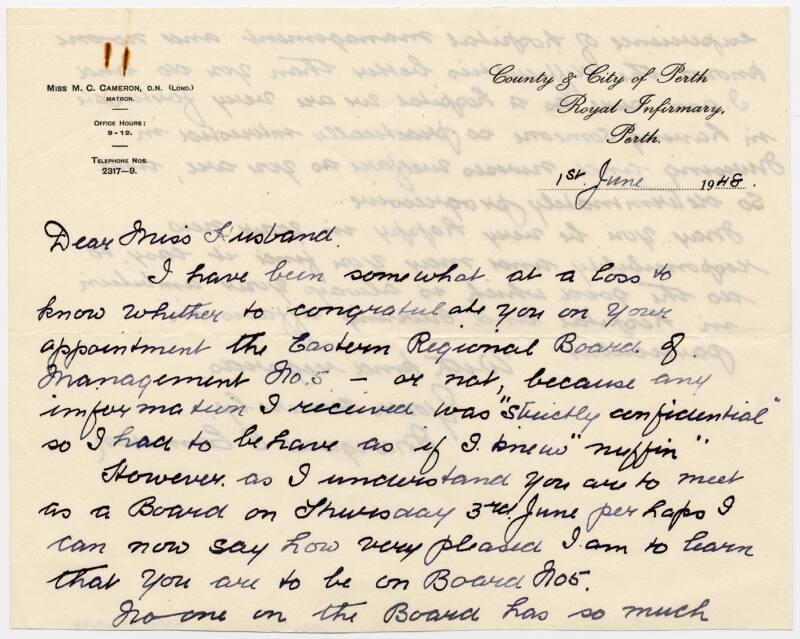 MISS M. C. CAMERON, D.N. (LOND.)
MATRON.
OFFICE HOURS:
9-12.
TELEPHONE NOS.
2317-9.
County & City of Perth
Royal Infirmary,
Perth.
1st. June 1948.
Dear Miss Husband.
I have been somewhat at a loss to
know whether to congratulate you on your
appointment the Eastern Regional Board of
Management No.5 – or not, because any
information I received was "strictly confidential"
so I had to behave as if I knew "nuffin"
However as I understand you are to meet
as a Board on Thursday 3rd. June perhaps I
can now say how very pleased I am to learn
that you are to be on Board No5.
No one on the Board has so much